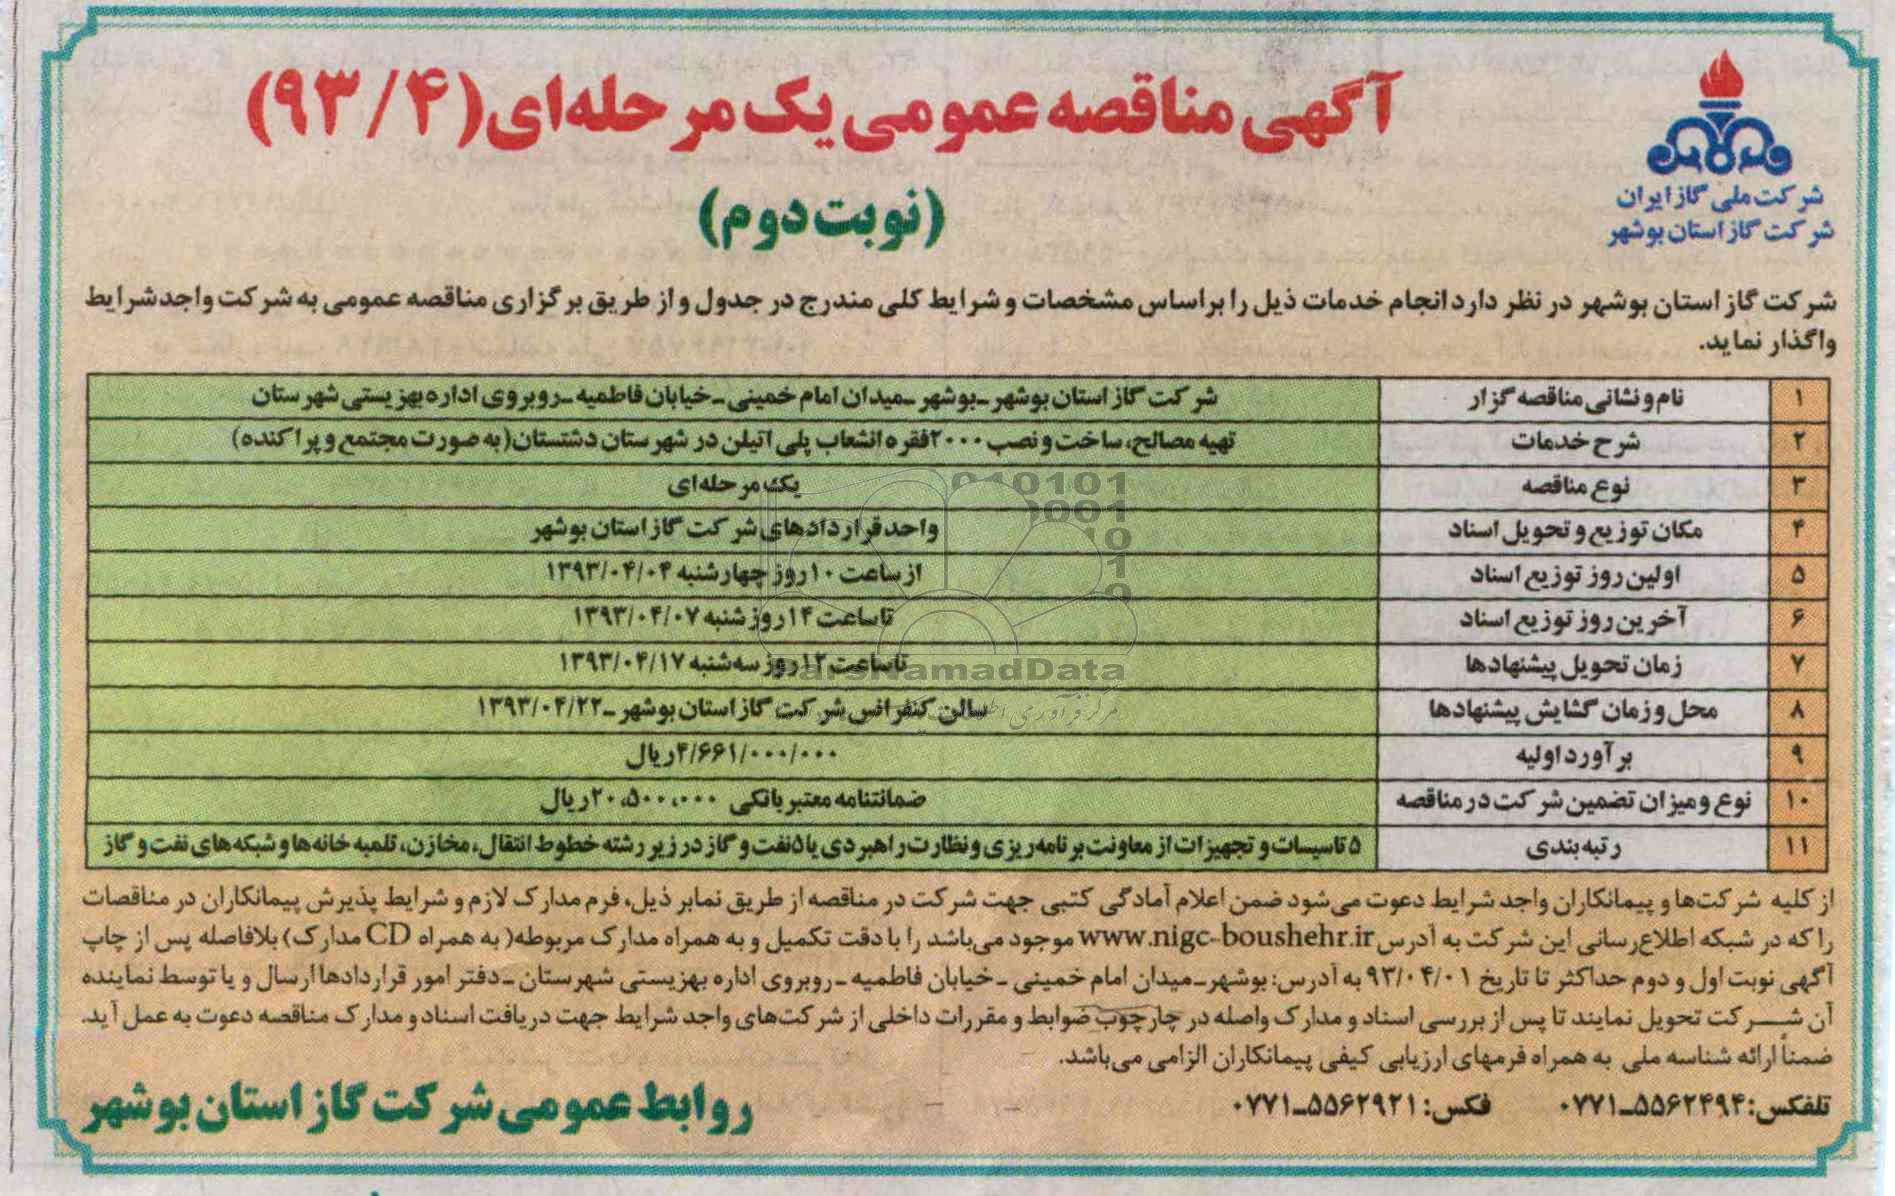 آگهی مناقصه عمومی یک مرحله‌ای (۹۳/۴)
(نوبت دوم)
شرکت ملی گاز ایران
شرکت گاز استان بوشهر
شرکت گاز استان بوشهر در نظر دارد انجام خدمات ذیل را براساس مشخصات و شرایط کلی مندرج در جدول و از طریق برگزاری مناقصه عمومی به شرکت واجد شرایط
واگذار نماید.
۱ نام و نشانی مناقصه گزار شرکت گاز استان بوشهر ـ بوشهر ـ میدان امام خمینی ـ خیابان فاطمیه ـ روبروی اداره بهزیستی شهرستان
۲ شرح خدمات تهیه مصالح، ساخت و نصب ۲۰۰۰ فقره انشعاب پلی اتیلن در شهرستان دشتستان (به صورت مجتمع و پراکنده)
۳ نوع مناقصه یک مرحله‌ای
۴ مکان توزیع و تحویل اسناد واحد قراردادهای شرکت گاز استان بوشهر
۵ اولین روز توزیع اسناد از ساعت ۱۰ روز چهارشنبه ۱۳۹۳/۰۴/۰۴
۶ آخرین روز توزیع اسناد تا ساعت ۱۴ روز شنبه ۱۳۹۳/۰۴/۰۷
۷ زمان تحویل پیشنهادها تا ساعت ۱۲ روز سه‌شنبه ۱۳۹۳/۰۴/۱۷
۸ محل و زمان گشایش پیشنهادها سالن کنفرانس شرکت گاز استان بوشهر ـ ۱۳۹۳/۰۴/۲۲
۹ برآورد اولیه ۴/۶۶۱/۰۰۰/۰۰۰ ریال
۱۰ نوع و میزان تضمین شرکت در مناقصه ضمانتنامه معتبر بانکی ۲۰،۵۰۰،۰۰۰ ریال
۱۱ رتبه بندی ۵ تاسیسات و تجهیزات از معاونت برنامه‌ریزی و نظارت راهبردی یا ۵ نفت و گاز در زیر رشته خطوط انتقال، مخازن، تلمبه خانه‌ها و شبکه‌های نفت و گاز
از کلیه شرکت‌ها و پیمانکاران واجد شرایط دعوت می‌شود ضمن اعلام آمادگی کتبی جهت شرکت در مناقصه از طریق نمابر ذیل، فرم مدارک لازم و شرایط پذیرش پیمانکاران در مناقصات
را که در شبکه اطلاع‌رسانی این شرکت به آدرس www.nigc-boushehr.ir موجود می‌باشد را با دقت تکمیل و به همراه مدارک مربوطه (به همراه CD مدارک) بلافاصله پس از چاپ
آگهی نوبت اول و دوم حداکثر تا تاریخ ۹۳/۰۴/۰۱ به آدرس: بوشهر ـ میدان امام خمینی ـ خیابان فاطمیه ـ روبروی اداره بهزیستی شهرستان ـ دفتر امور قراردادها ارسال و یا توسط نماینده
آن شرکت تحویل نمایند تا پس از بررسی اسناد و مدارک واصله در چارچوب ضوابط و مقررات داخلی از شرکت‌های واجد شرایط جهت دریافت اسناد و مدارک مناقصه دعوت به عمل آید.
ضمناً ارائه شناسه ملی به همراه فرمهای ارزیابی کیفی پیمانکاران الزامی می‌باشد.
تلفکس: ۵۵۶۲۴۹۴-۰۷۷۱ فکس: ۵۵۶۲۹۲۱-۰۷۷۱
روابط عمومی شرکت گاز استان بوشهر
ParsNamadData